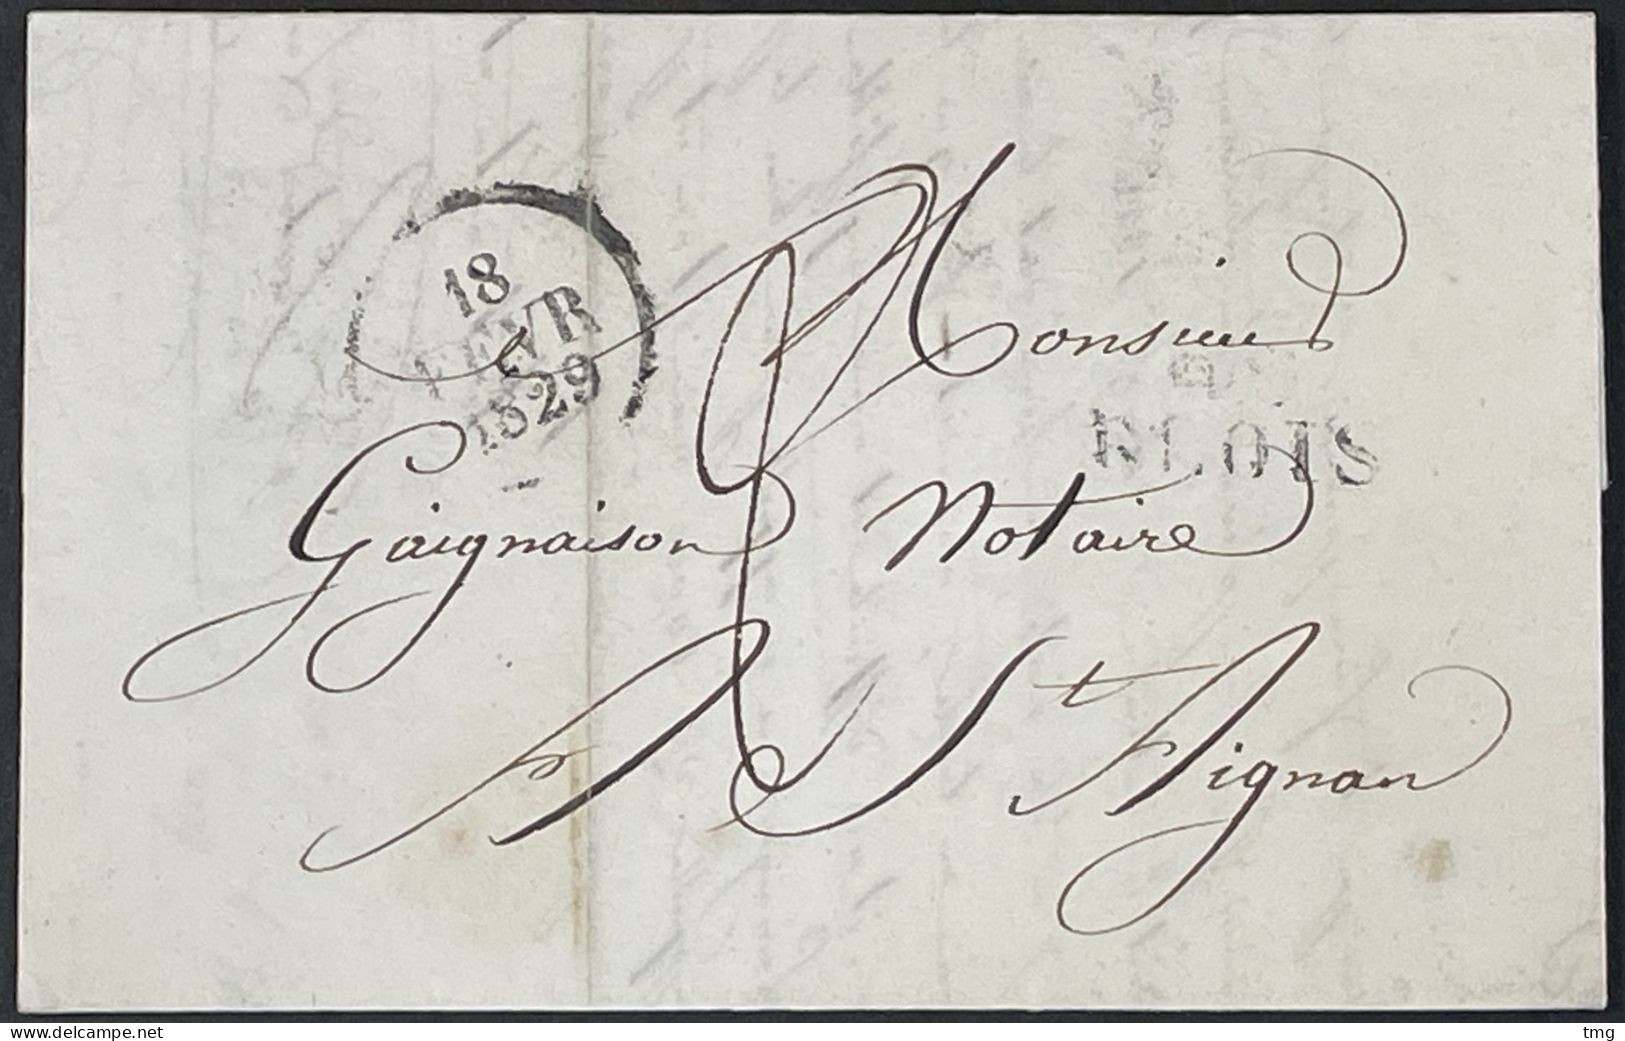 18
FEVR
1829
Monsieur
BLOIS
Gaignaison Notaire
A St Aignan
www.delcampe.net
tmg